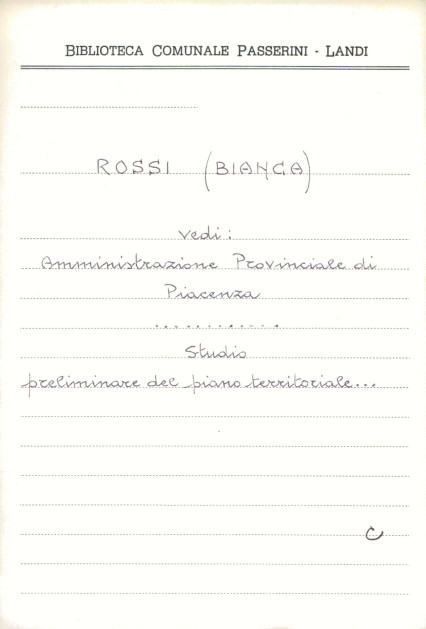 BIBLIOTECA COMUNALE PASSERINI - LANDI
ROSSI (BIANCA)
vedi:
Amministrazione Provinciale di
Piacenza
............
Studio
preliminare del piano territoriale...
C